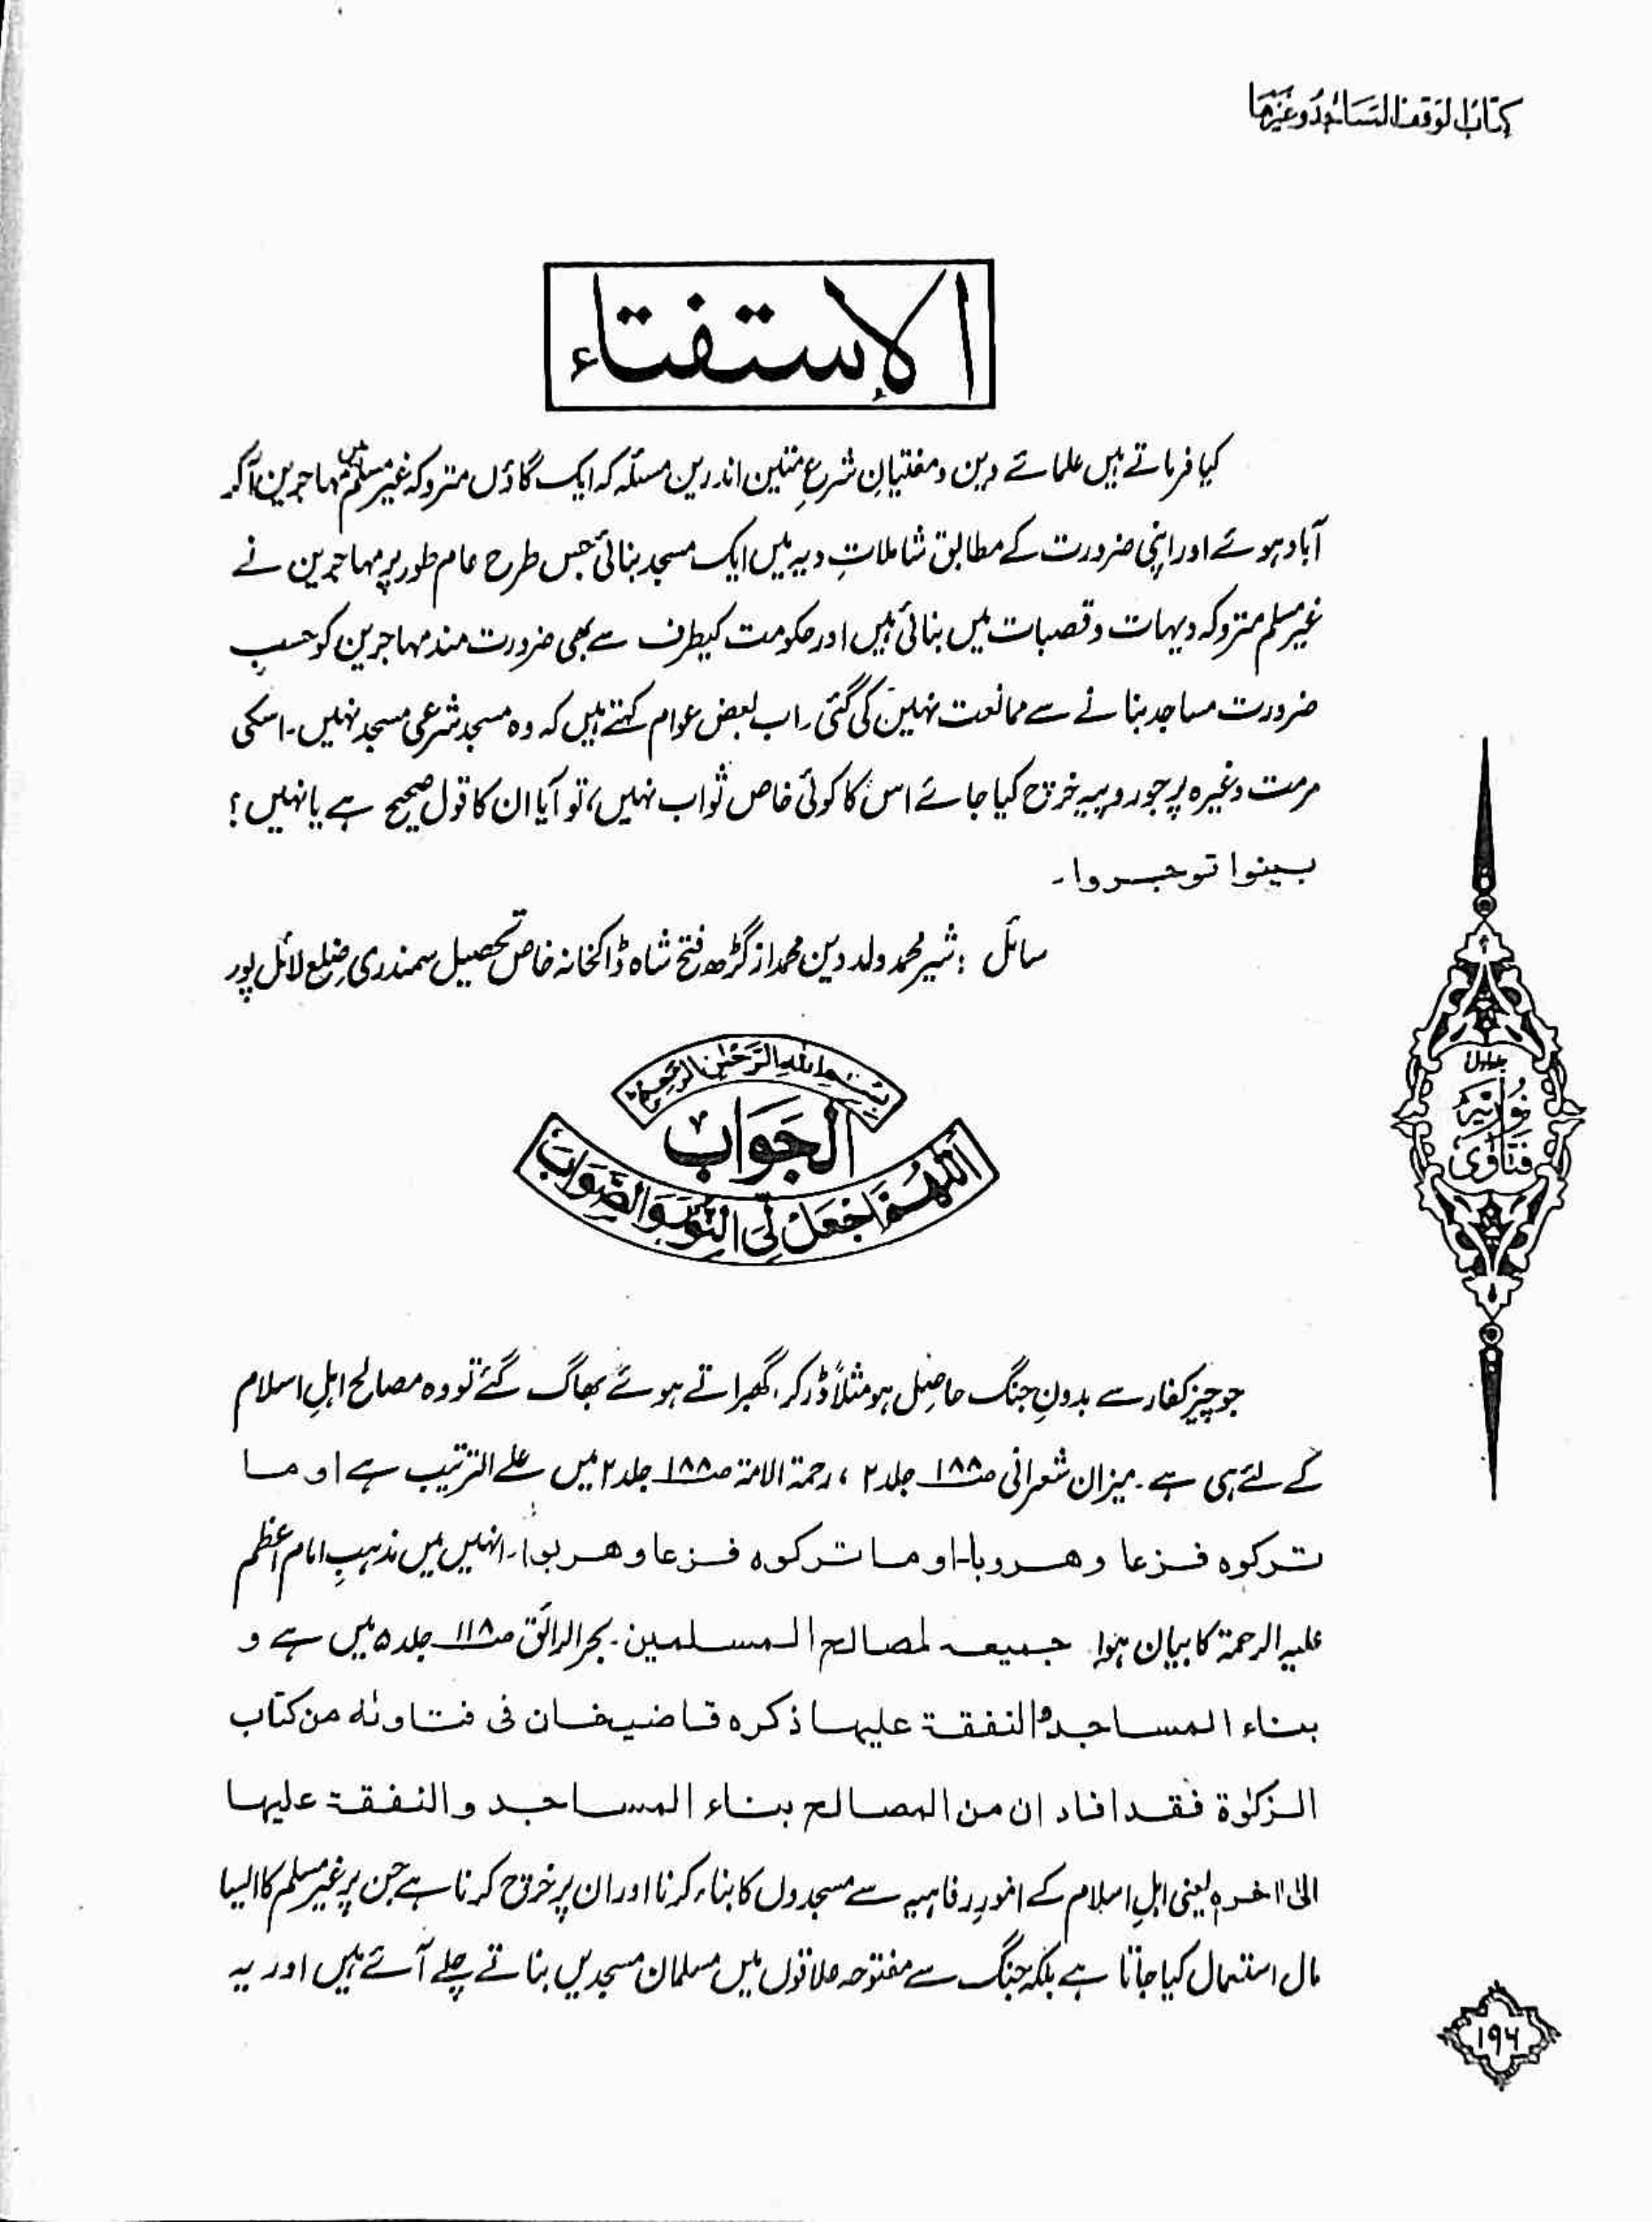 کتاب الوقف المساجد وغیرھا
الإستفتاء
کیا فرماتے ہیں علمائے دین و مفتیانِ شرعِ متین اندریں مسئلہ کہ ایک گاؤں متروکہ غیر مسلم میں مہاجرین آکر
آباد ہوئے اور اپنی ضرورت کے مطابق شاملاتِ دیہ میں ایک مسجد بنائی جس طرح عام طور پر مہاجرین نے
غیر مسلم متروکہ دیہات و قصبات میں بنائی ہیں اور حکومت کیطرف سے بھی ضرورت مند مہاجرین کو حسبِ
ضرورت مساجد بنانے سے ممانعت نہیں کی گئی۔ اب بعض عوام کہتے ہیں کہ وہ مسجد شرعی مسجد نہیں۔ اسکی
مرمت وغیرہ پر جو روپیہ خرچ کیا جائے اس کا کوئی خاص ثواب نہیں، تو آیا ان کا قول صحیح ہے یا نہیں؟
بینوا توجروا۔
سائل : شیر محمد ولد دین محمد از گڑھ فتح شاہ ڈاکخانہ خاص تحصیل سمندری ضلع لائل پور
بِسْمِ اللهِ الرَّحْمٰنِ الرَّحِيْمِ
الْجَوَابُ
اَللّٰهُمَّ اجْعَلْ لِّی النُّوْرَ وَالصَّوَابَ
جو چیز کفار سے بدونِ جنگ حاصِل ہو مثلاً ڈر کر، گھبراتے ہوئے بھاگ گئے تو وہ مصالح اہلِ اسلام
کے لئے ہی ہے۔ میزان شعرانی صـ۱۸۸ جلد ۲، رحمۃ الامۃ صـ۱۸۸ جلد ۲ میں علے الترتیب ہے او ما
ترکوہ فزعا وھروبا۔ او ما ترکوہ فزعا وھربوا۔ انہیں میں مذہبِ امام اعظم
علیہ الرحمۃ کا بیان ہوا جمیعہ لمصالح المسلمین۔ بحر الرائق صـ۱۱۸ جلد ۵ میں ہے و
بناء المساجد والنفقۃ علیہا ذکرہ قاضیخان فی فتاوٰہ من کتاب
الزکوٰۃ فقد افاد ان من المصالح بناء المساجد والنفقۃ علیہا
الیٰ اٰخرہ یعنی اہلِ اسلام کے امورِ رفاہیہ سے مسجدوں کا بناء کرنا اور ان پر خرچ کرنا ہے جن پر غیر مسلم کا ایسا
مال استعمال کیا جاتا ہے بلکہ جنگ سے مفتوحہ علاقوں میں مسلمان مسجدیں بناتے چلے آئے ہیں اور یہ
جلد اول
نُوریّہ
فتاویٰ
۱۹۶